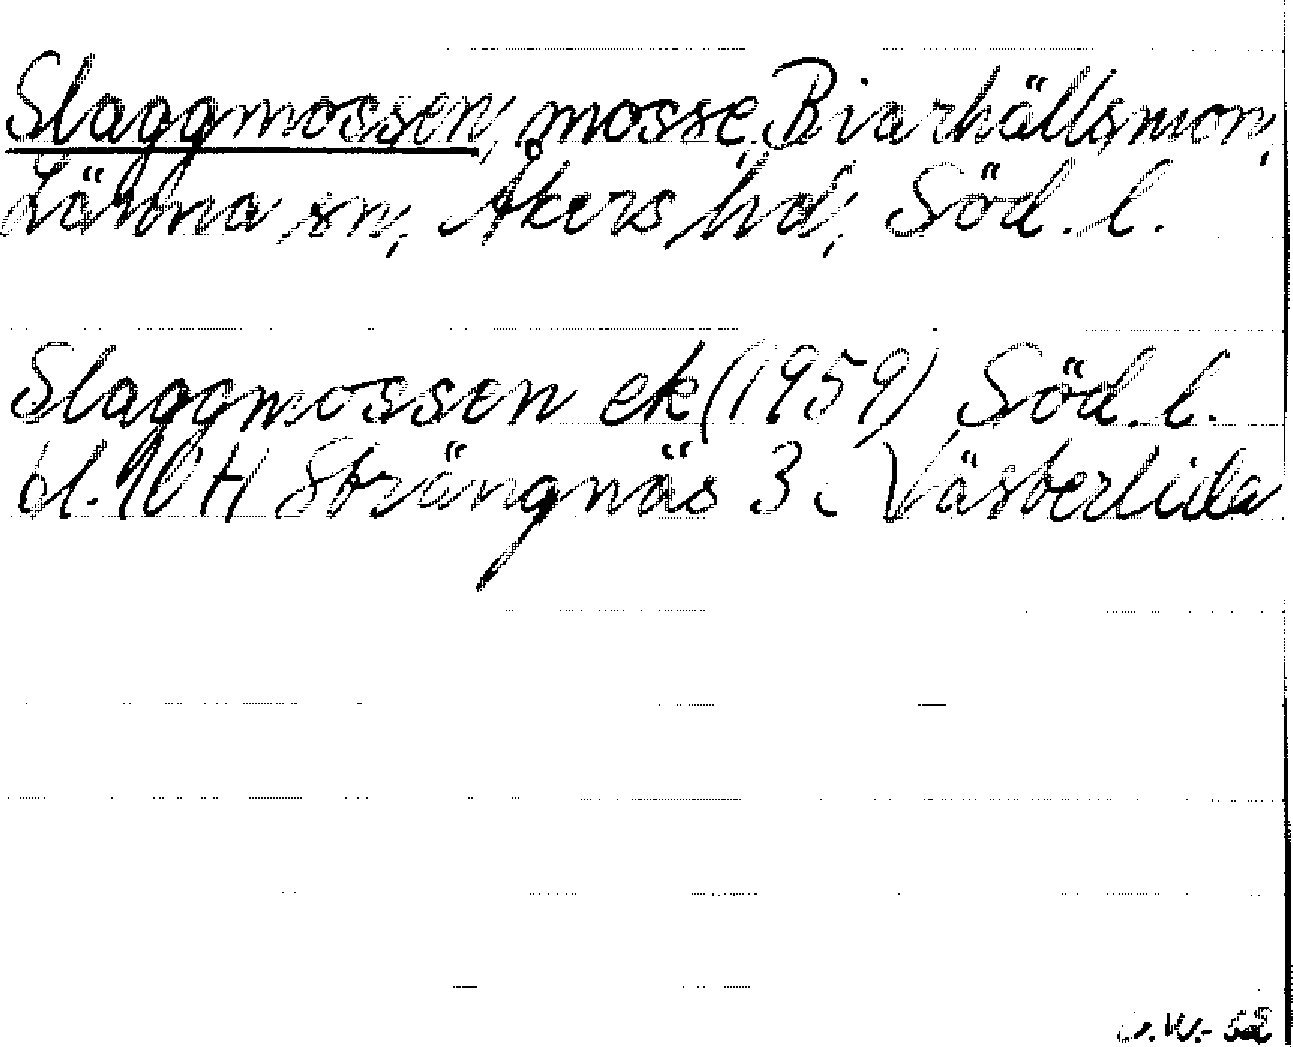 Slaggmossen, mosse, Biarhällsmon,
Länna sn, Åkers hd, Söd. l.
Slaggmossen ek (1959) Söd. l.
bl. 10 H Strängnäs 3 c Västerlida